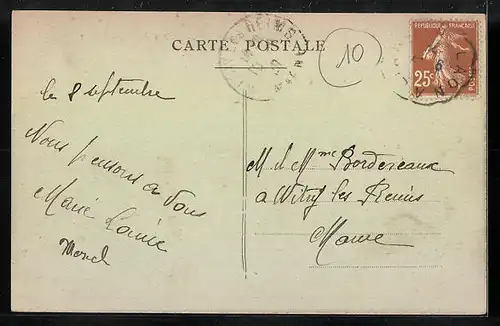 CARTE POSTALE
10
REPUBLIQUE FRANÇAISE
25c
POSTES
REIMS
LAON
le 8 septembre
Nous pensons a Vous
Marie Louise
M. et Mme Bordereaux
a Witry les Reims
Marne